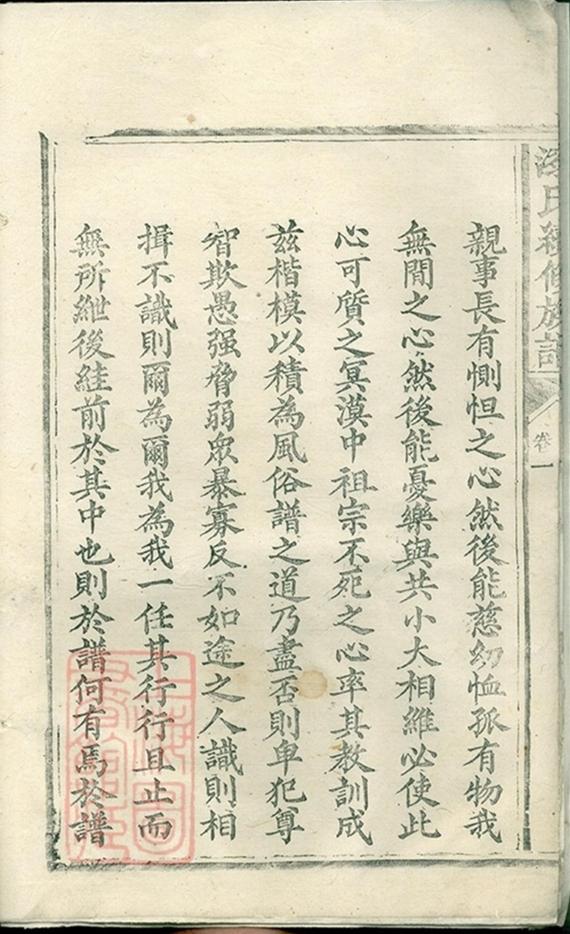 氏續修族譜
卷一
親事長有惻怛之心然後能慈幼恤孤有物我
無閒之心然後能憂樂與共小大相維必使此
心可質之冥漠中祖宗不死之心率其教訓成
茲楷模以積為風俗譜之道乃盡否則卑犯尊
智欺愚强脅弱眾暴寡反不如途之人識則相
揖不識則爾為爾我為我一任其行行且止而
無所紲後絓前於其中也則於譜何有焉於譜